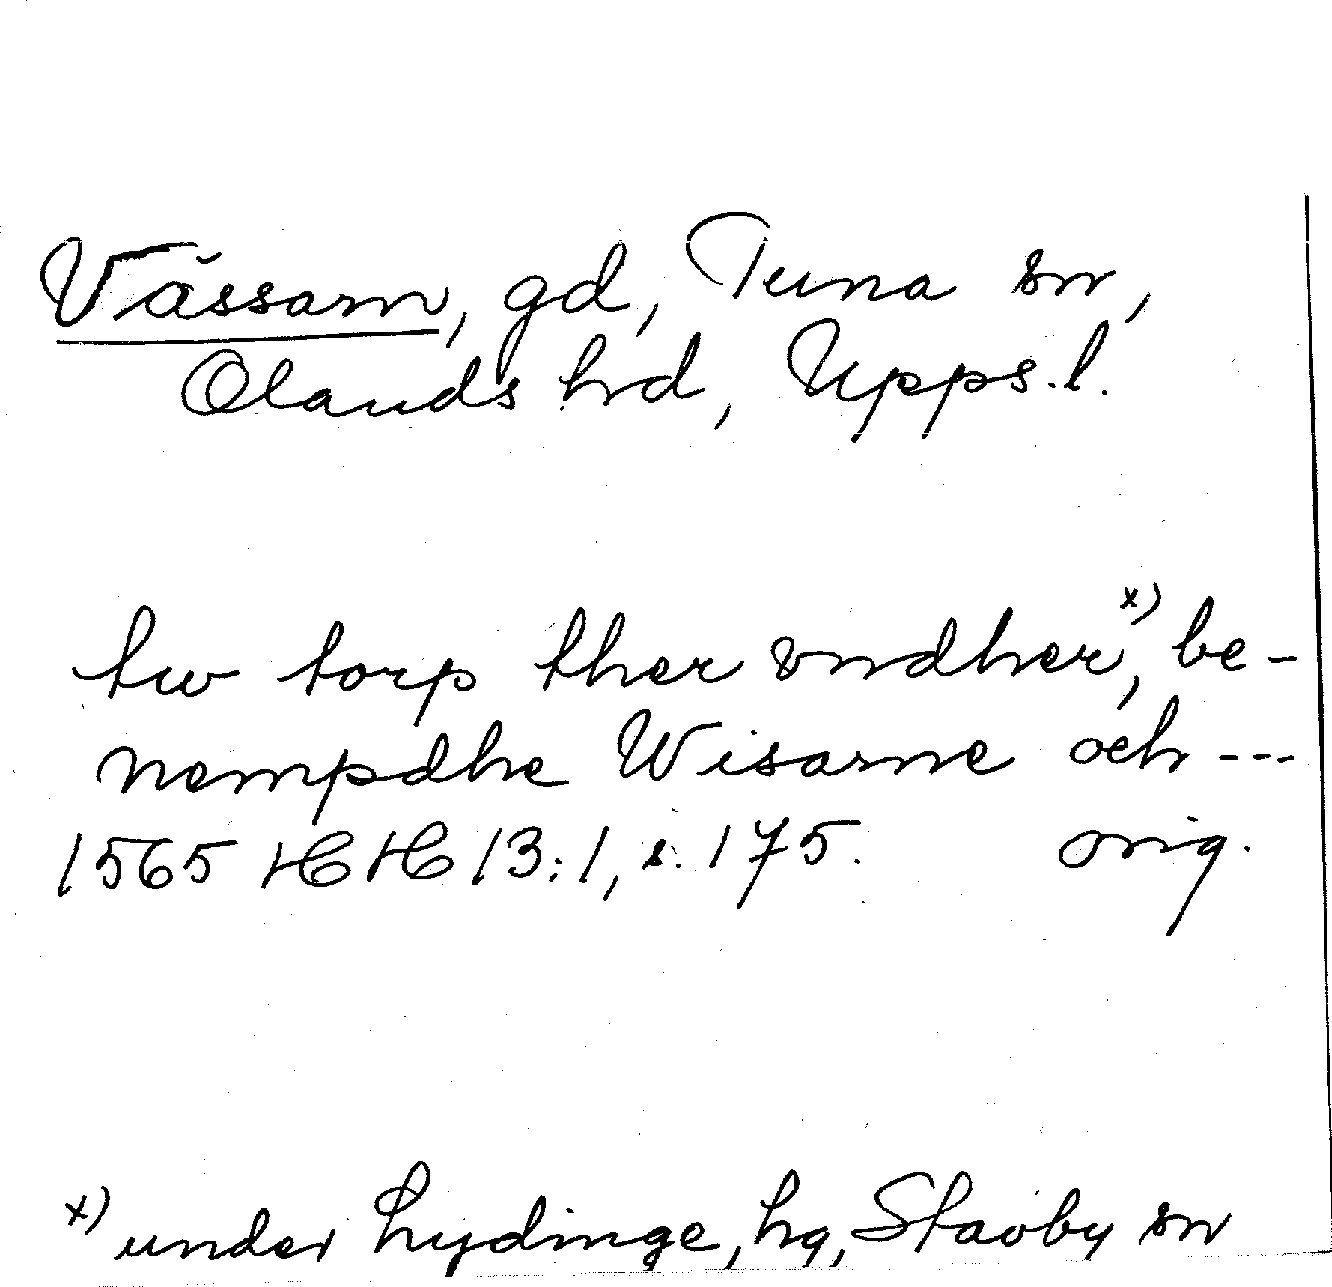 Vässarn, gd, Tuna sn,
Olands hrd, Upps. l.
tw torp ther vndher x), be-
nempdhe Wisarne och ---
1565 HH 13:1, s. 175. orig.
x) under Lydinge, hg, Stavby sn